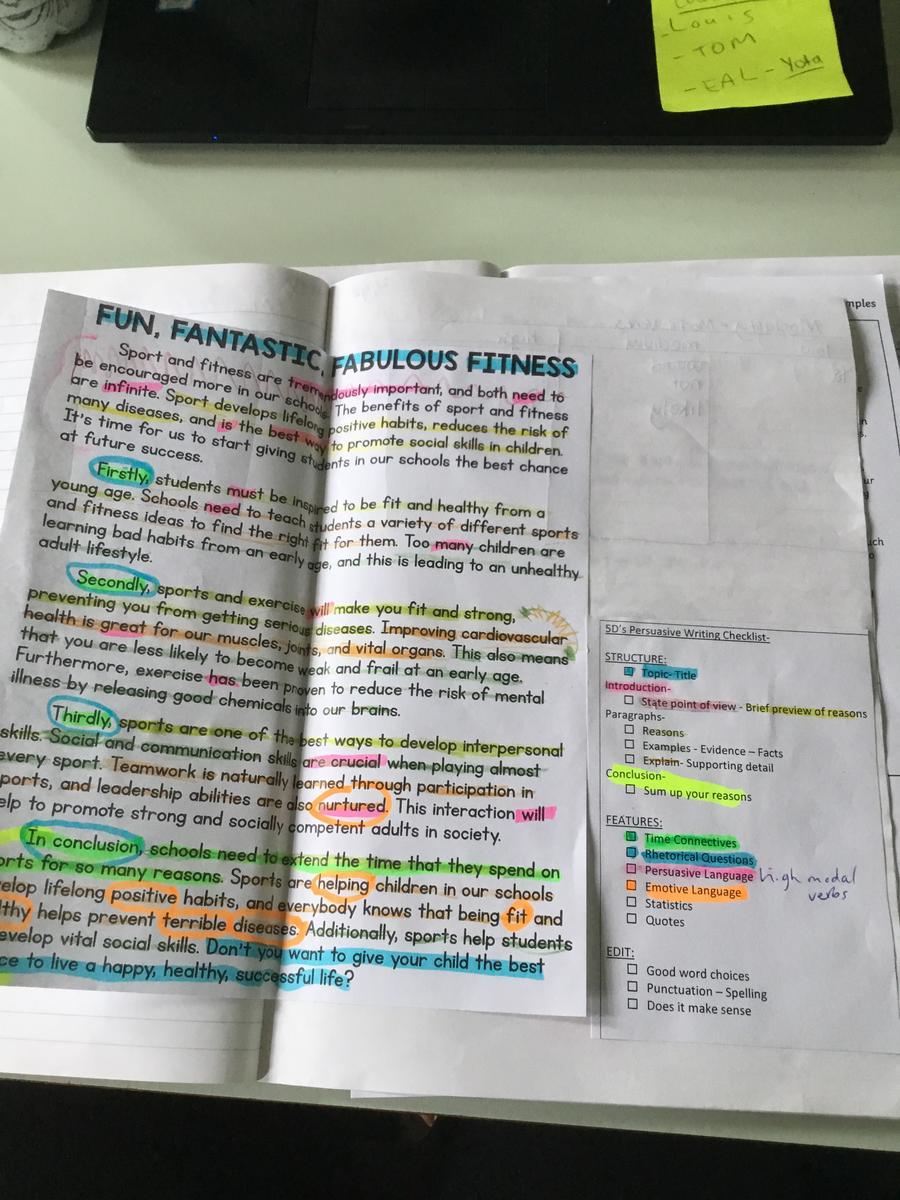 Louis
- TOM
- EAL - Yota
mples
FUN, FANTASTIC, FABULOUS FITNESS
Sport and fitness are tremendously important, and both need to
be encouraged more in our schools. The benefits of sport and fitness
are infinite. Sport develops lifelong positive habits, reduces the risk of
many diseases, and is the best way to promote social skills in children.
It's time for us to start giving students in our schools the best chance
at future success.
Firstly, students must be inspired to be fit and healthy from a
young age. Schools need to teach students a variety of different sports
and fitness ideas to find the right fit for them. Too many children are
learning bad habits from an early age, and this is leading to an unhealthy
adult lifestyle.
Secondly, sports and exercise will make you fit and strong,
preventing you from getting serious diseases. Improving cardiovascular
health is great for our muscles, joints, and vital organs. This also means
that you are less likely to become weak and frail at an early age.
Furthermore, exercise has been proven to reduce the risk of mental
illness by releasing good chemicals into our brains.
Thirdly, sports are one of the best ways to develop interpersonal
skills. Social and communication skills are crucial when playing almost
every sport. Teamwork is naturally learned through participation in
ports, and leadership abilities are also nurtured. This interaction will
elp to promote strong and socially competent adults in society.
In conclusion, schools need to extend the time that they spend on
orts for so many reasons. Sports are helping children in our schools
elop lifelong positive habits, and everybody knows that being fit and
lthy helps prevent terrible diseases. Additionally, sports help students
evelop vital social skills. Don't you want to give your child the best
ce to live a happy, healthy, successful life?
5D's Persuasive Writing Checklist-
STRUCTURE:
Topic- Title
Introduction-
State point of view - Brief preview of reasons
Paragraphs-
Reasons
Examples - Evidence – Facts
Explain- Supporting detail
Conclusion-
Sum up your reasons
FEATURES:
Time Connectives
Rhetorical Questions
Persuasive Language high modal
verbs
Emotive Language
Statistics
Quotes
EDIT:
Good word choices
Punctuation – Spelling
Does it make sense